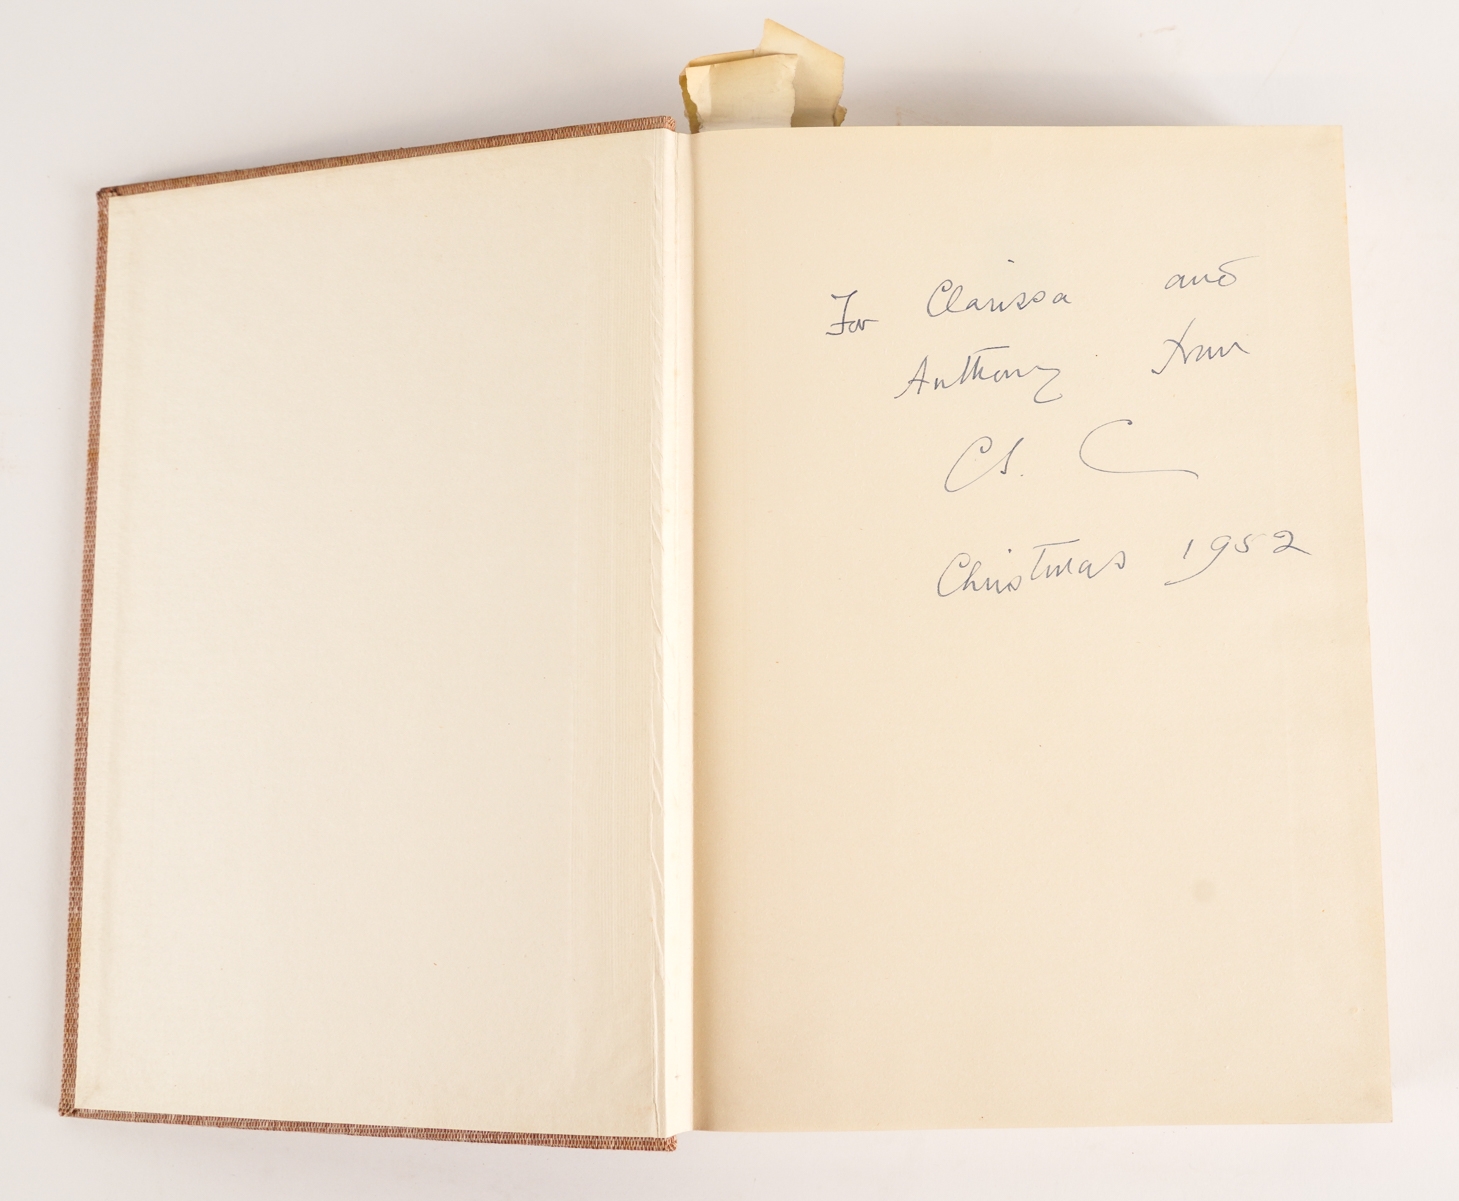 For Clarissa and
Anthony from
Cl. C
Christmas 1952